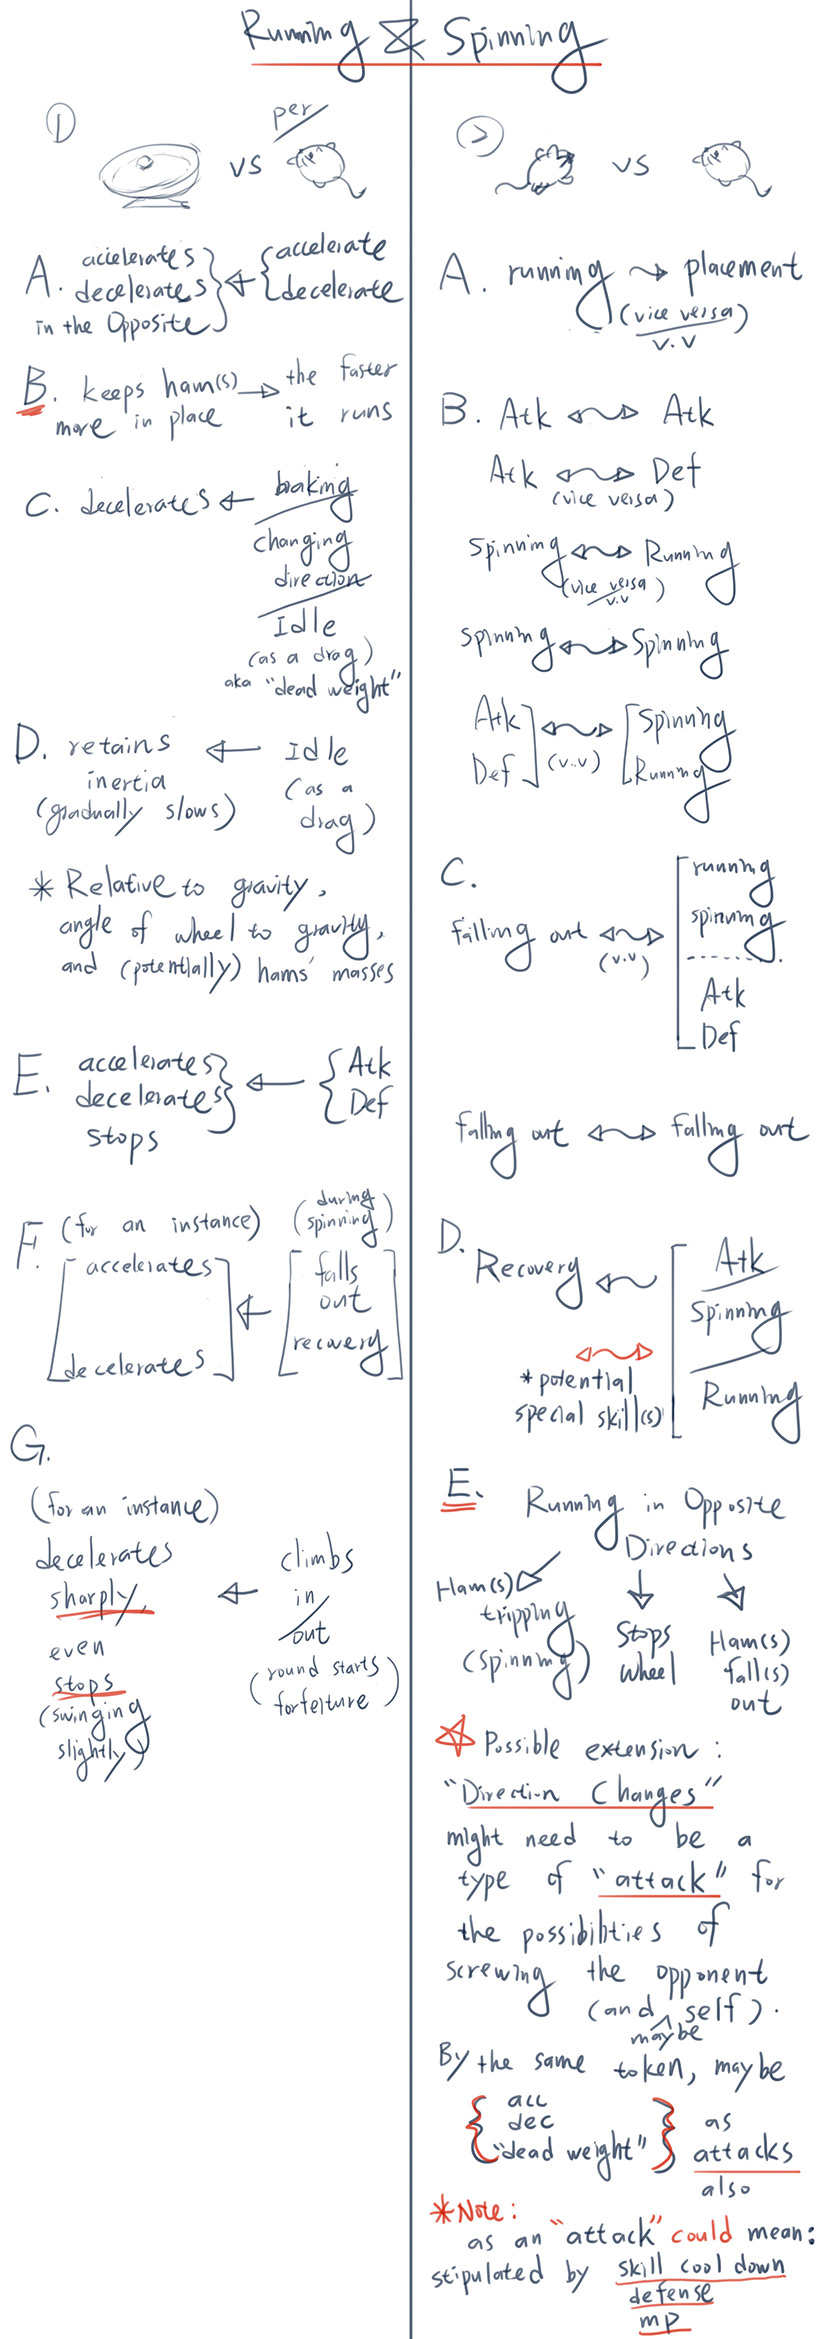 Running & Spinning
①
VS
per
A. accelerates
decelerates
in the Opposite
accelerate
decelerate
B. keeps ham(s)
more in place
the faster
it runs
C. decelerates
braking
changing
direction
Idle
(as a drag)
aka "dead weight"
D. retains
inertia
(gradually slows)
Idle
(as a
drag)
* Relative to gravity,
angle of wheel to gravity,
and (potentially) hams' masses
E. accelerates
decelerates
stops
Atk
Def
F. (for an instance)
accelerates
decelerates
(during
spinning)
falls
out
recovery
G.
(for an instance)
decelerates
sharply,
even
stops
(swinging
slightly)
climbs
in
out
(round starts
forfeiture)
②
VS
A. running placement
(vice versa)
v.v
B. Atk Atk
Atk Def
(vice versa)
Spinning Running
(vice versa)
v.v
spinning Spinning
Atk
Def
(v.v)
Spinning
Running
C.
falling out
(v.v)
running
spinning
Atk
Def
falling out falling out
D.
Recovery
Atk
Spinning
Running
* potential
special skill(s)
E. Running in Opposite
Directions
Ham(s)
tripping
(spinning)
Stops
Wheel
Ham(s)
fall(s)
out
☆ Possible extension:
"Direction Changes"
might need to be a
type of "attack" for
the possibilities of
screwing the opponent
(and maybe self).
By the same token, maybe
acc
dec
"dead weight"
as
attacks
also
*Note:
as an "attack" could mean:
stipulated by skill cool down
defense
mp